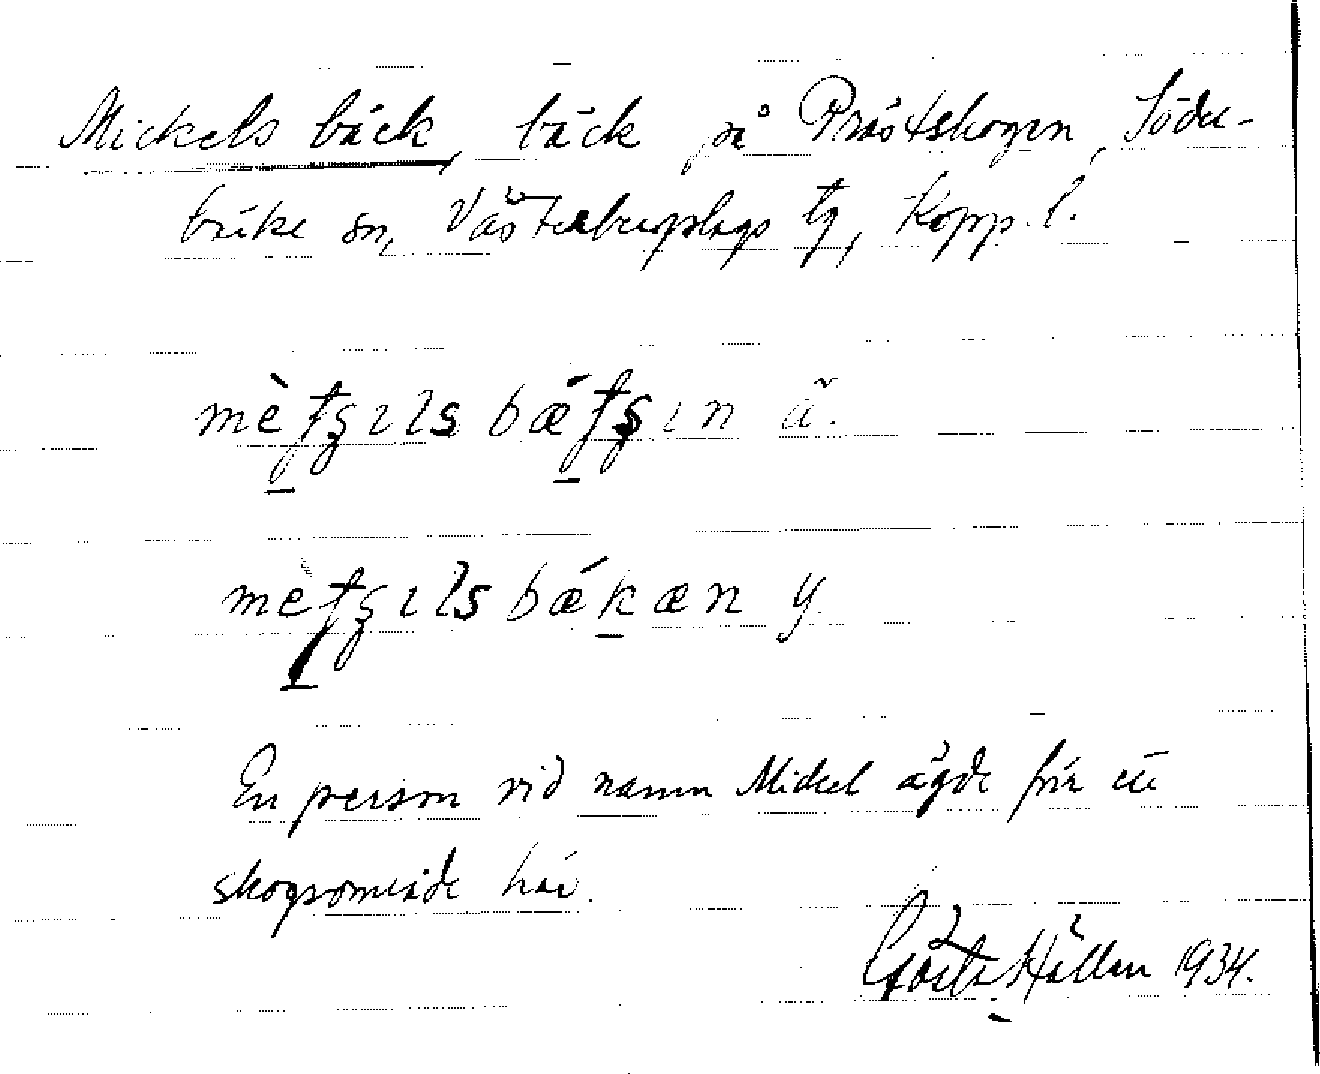 Mickels bäck, bäck på Prästskogen, Söder-
bärke sn, Västerbergslags tg, Kopp. l.
bǽ
ä.
y.
En person vid namn Mickel ägde förr ett
skogsområde här.
Gösta Hållen 1934.